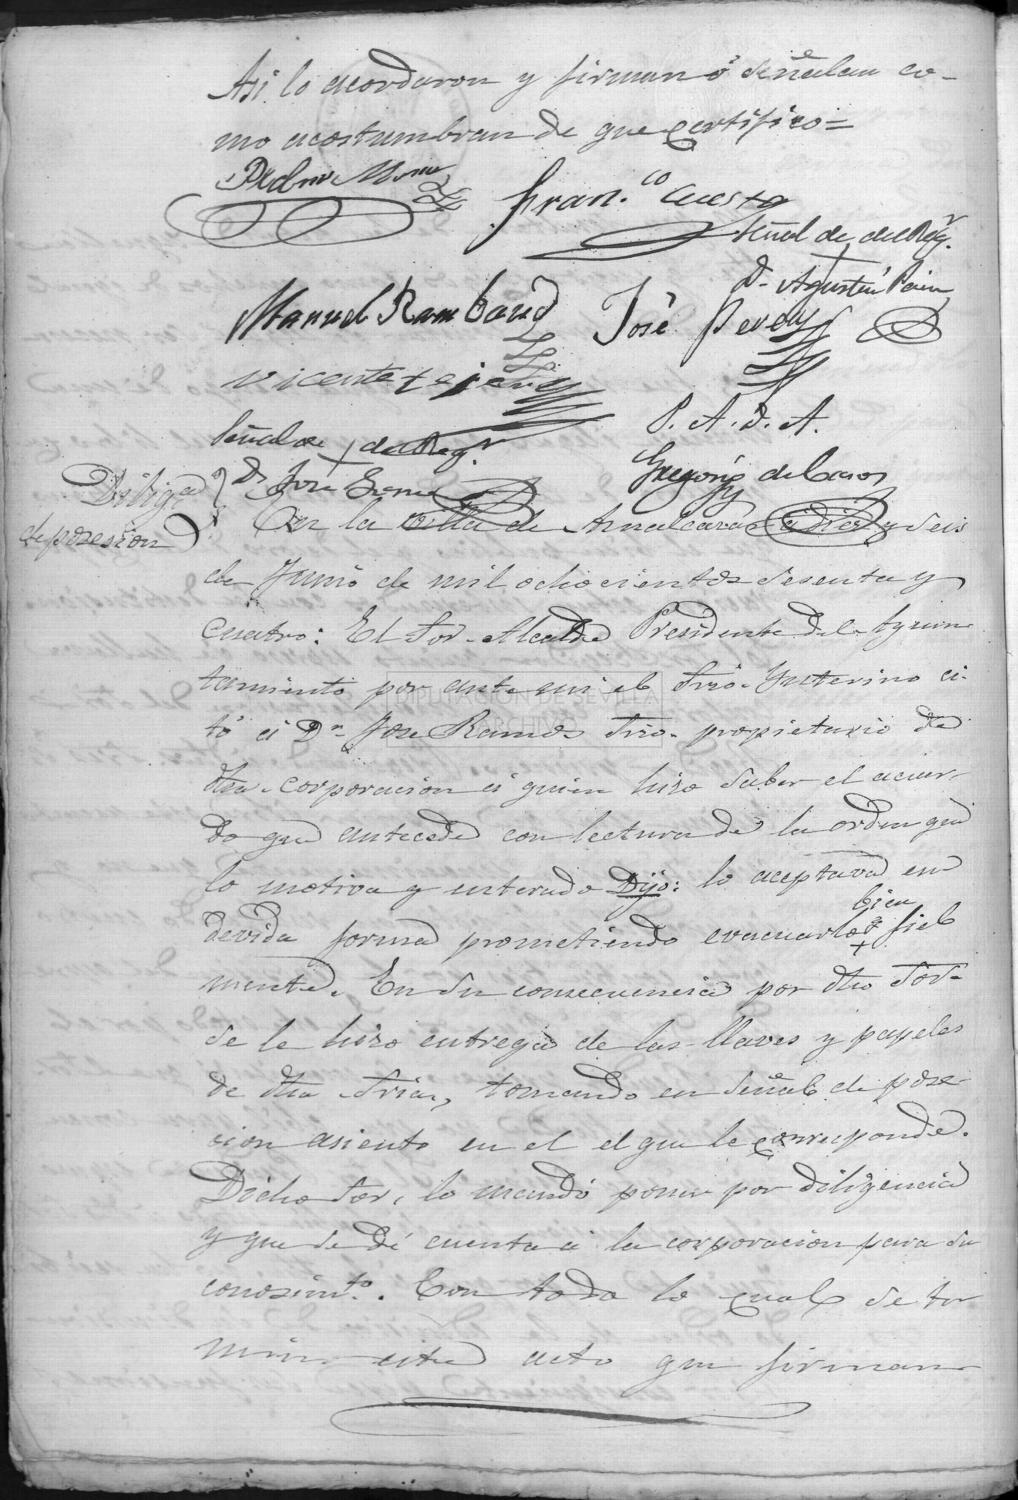 Asi lo acordaron y firman ó señalan co-
mo acostumbran de que certifico=
Pedro Mora
Fran.co Cuesta
Señal de + del Reg.r
D. Agustin
Manuel Rambaud José
Vicente tejero
P. A. D. A.
Señal de + del Reg.r
D. José
Gregorio de Casos
Diliga
de posesion
En la villa de Aznalcazar a diez y seis
de Junio de mil ochocientos sesenta y
cuatro: El Sor. Alcalde Presidente del Ayun-
tamiento por ante mi el Srio. Ynterino ci-
tó á Dn. Jose Ramos Srio. propietario de
dha. corporacion á quien hizo saber el acuer-
do que antecede con lectura de la orden que
lo motiva y enterado Dijo: lo aceptava en
devida forma prometiendo evacuarlo bien y fiel
mente. En su consecuencia por dho Sor.
se le hizo entrega de las llaves y papeles
de dha Sria, tomando en señal de pose-
cion asiento en el el que le corresponde.
Dicho Sor. lo mandó poner por diligencia
y que se dé cuenta á la corporacion para su
conosimto. Con todo lo cual se ter
mino este acto que firman
DIPUTACIÓN DE SEVILLA
ARCHIVO